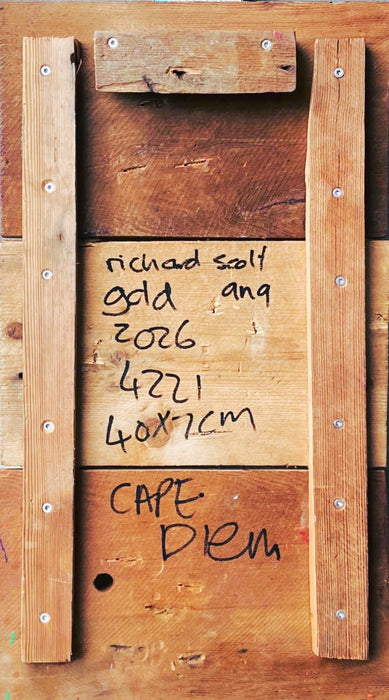 richard scott
gold ana
2026
4221
40x7cm
CAPE.
Diem